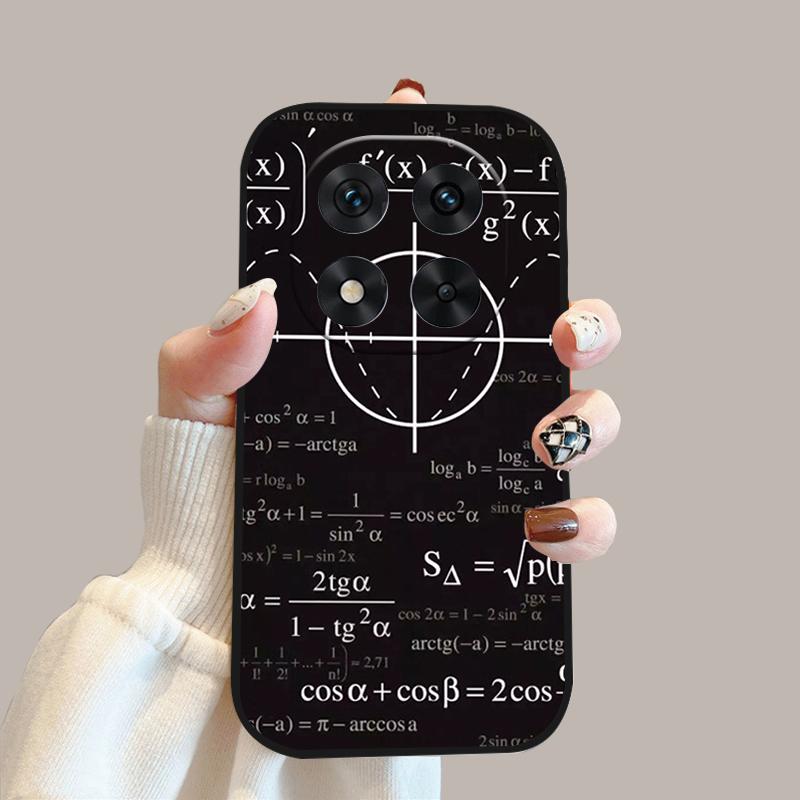 sin α cos α
logₐ b/c = logₐ b – lo
(x)/(x))′ f′(x) g(x) – f/g²(x)
cos 2α = c
+ cos² α = 1
–a) = –arctga
logₐ b = log꜀ b/log꜀ a
= r logₐ b
tg²α+1 = 1/sin² α = cosec²α
sin α
os x)² = 1 – sin 2x
S_Δ = √p(p
α = 2tgα/1 – tg²α
tgx =
cos 2α = 1 – 2 sin² α
arctg(–a) = –arctg
+ 1/1! + 1/2! + ... + 1/n!) ≈ 2,71
cosα + cosβ = 2cos
(–a) = π – arccosa
2 sin α